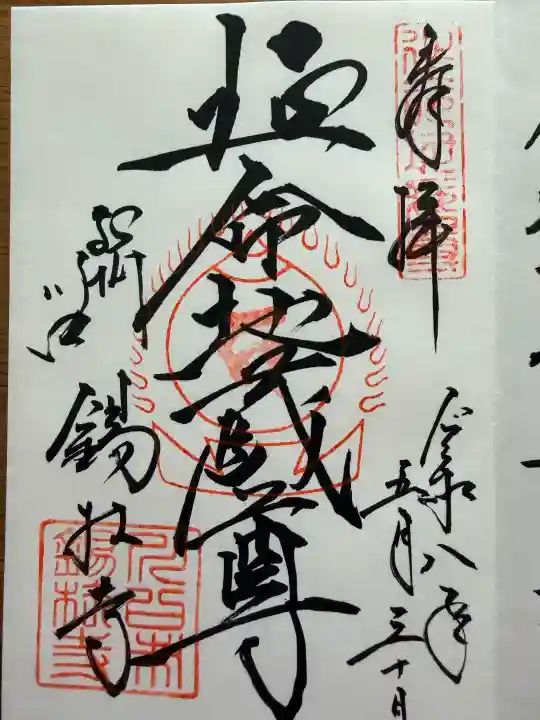 奉拝
令和八年
五月三十日
延命地蔵尊
武州
川口
錫杖寺
錫杖寺